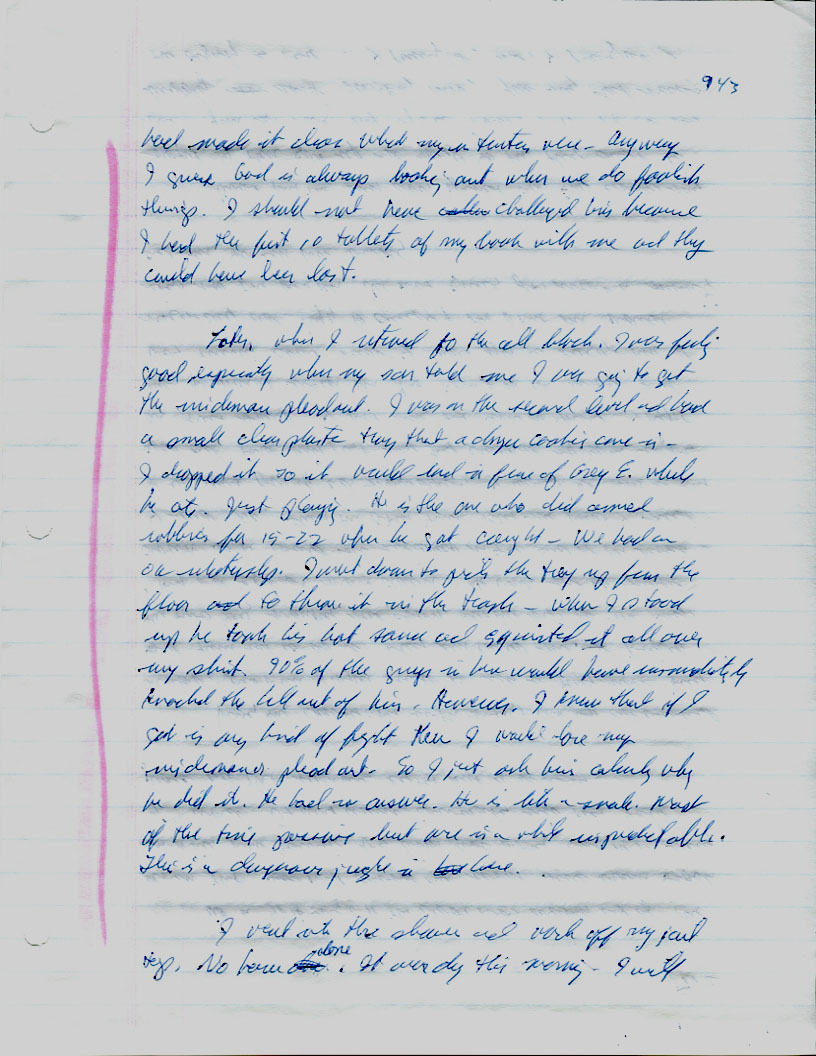 943
had made it clear what my intentions were - Anyway
I guess God is always looking out when we do foolish
things. I should not have challenged him because
I had the first 10 tablets of my book with me and they
could have been lost.
Later, when I returned to the cell block. I was feeling
good, especially when my son told me I was going to get
the misdemeanor plead out. I was on the second level and had
a small clear plastic tray that a dozen cookies came in -
I dropped it so it would land in front of Greg E. while
he ate. Just playing. He is the one who did armed
robberies for 19-22 when he got caught - We had an
ok relationship. I went down to pick the tray up from the
floor and to throw it in the trash - When I stood
up he took his hot sauce and squirted it all over
my shirt. 90% of the guys in here would have immediately
knocked the hell out of him. However, I knew that if I
got in any kind of fight then I would lose my
misdemeanor plead out. So I just ask him calmly why
he did it. He had no answer. He is like a snake. Most
of the time passive but once in a while unpredictable.
This is a dangerous jungle in here.
I went into the shower and wash off my
. No harm done. It was dry this morning - I will